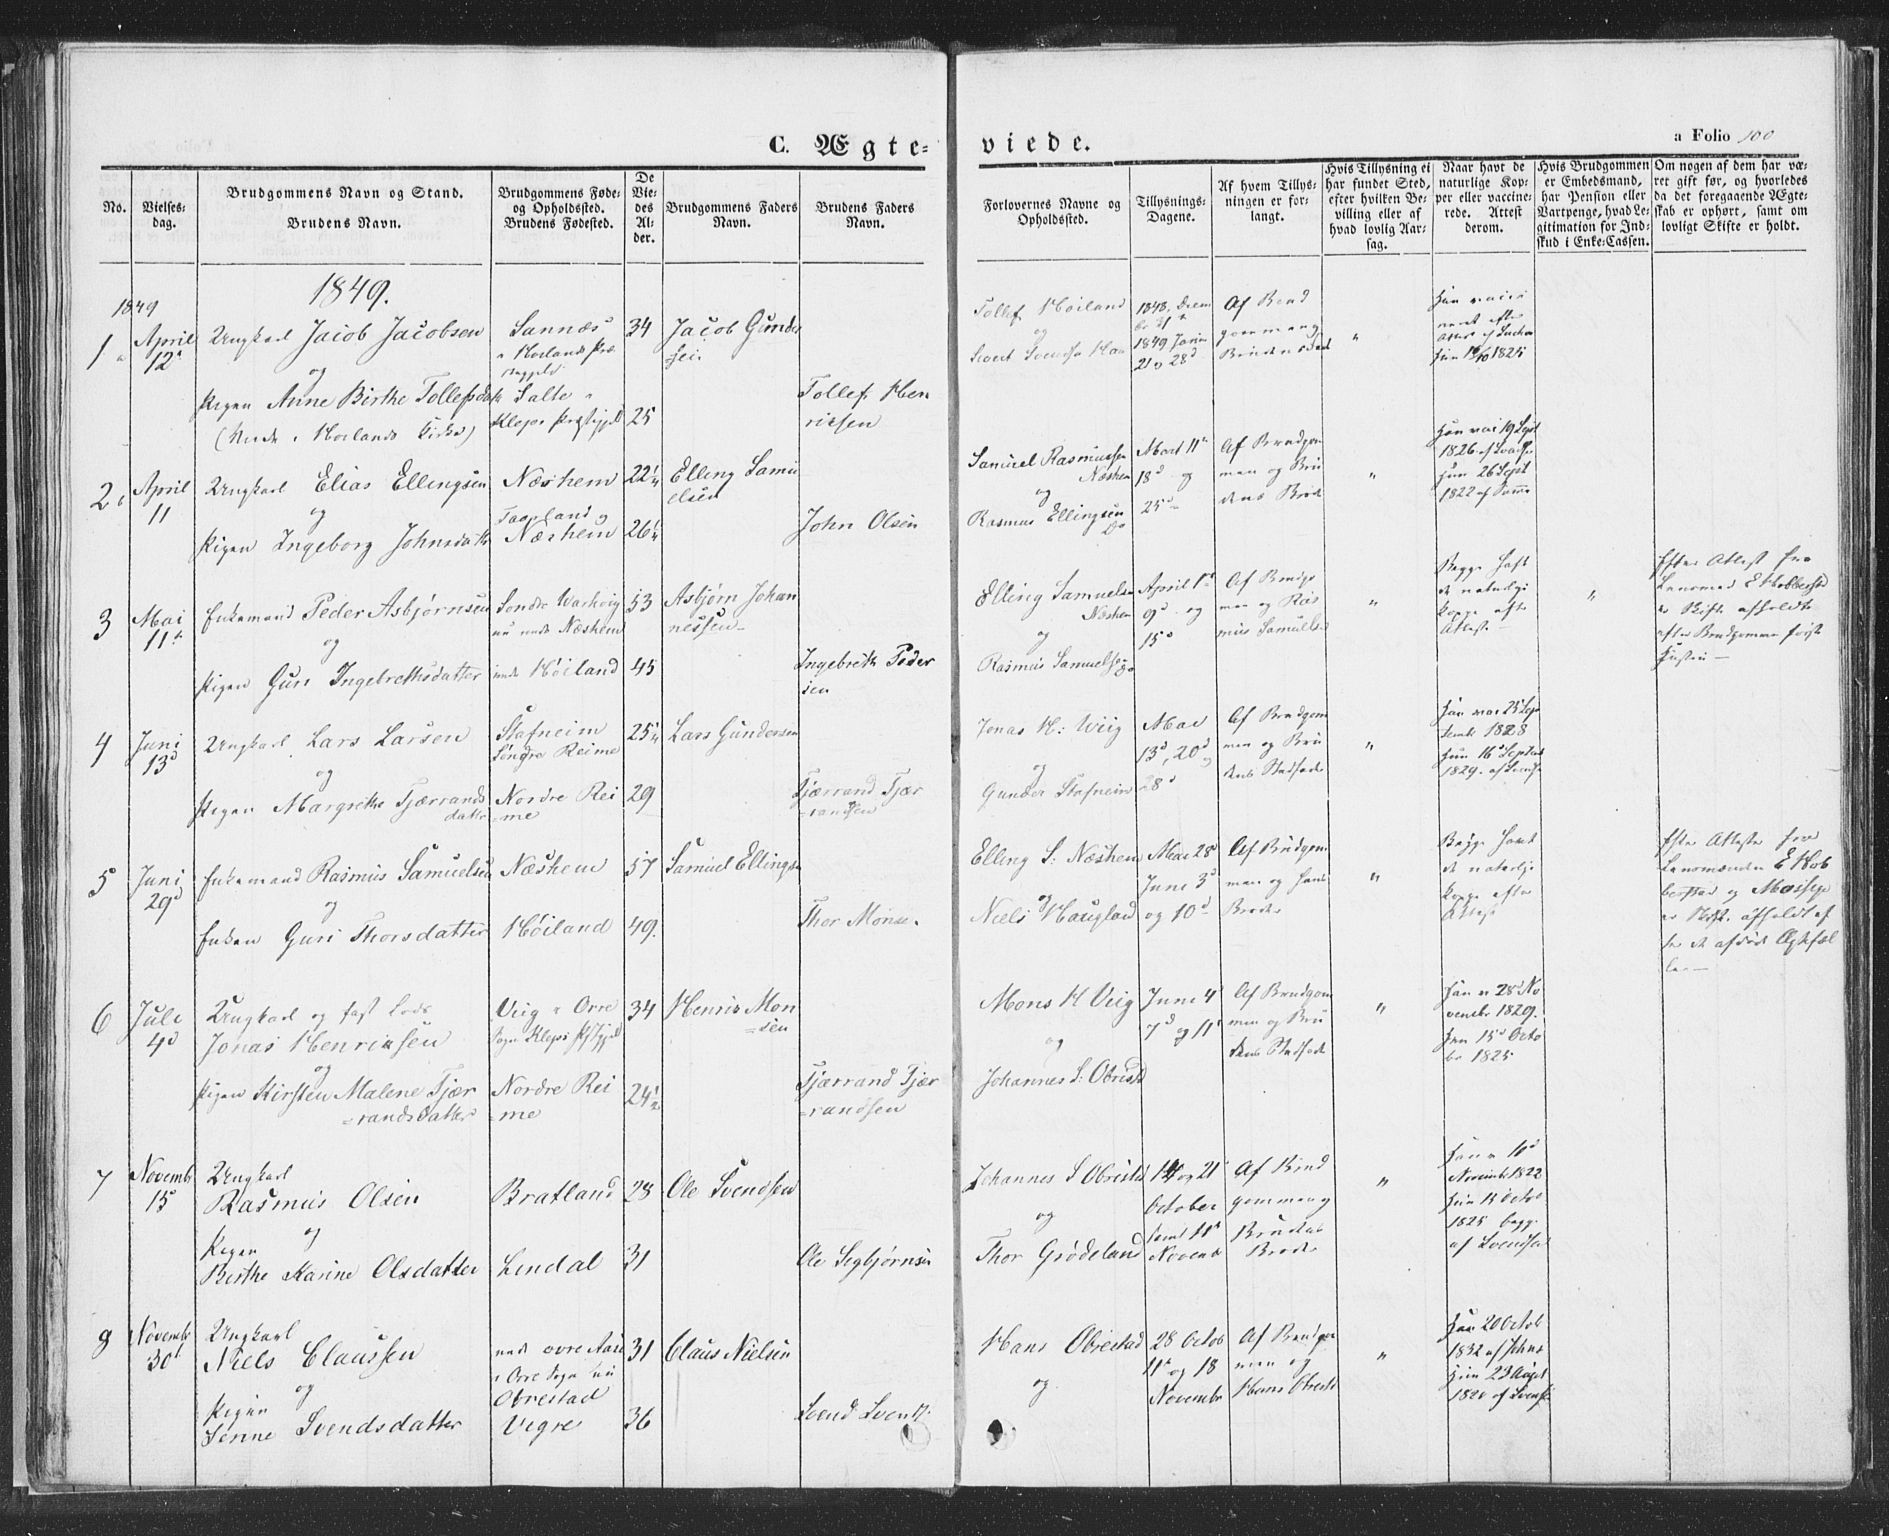 C. Ægte-
viede.
a Folio 100
No.
Vielses-
dag.
Brudgommens Navn og Stand.
Brudens Navn.
Brudgommens Føde-
og Opholdssted.
Brudens Fødested.
De
Vie-
des
Al-
der.
Brudgommens Faders
Navn.
Brudens Faders
Navn.
Forlovernes Navne og
Opholdssted.
Tillysnings-
Dagene.
Af hvem Tillys-
ningen er for-
langt.
Hvis Tillysning ei
har fundet Sted,
efter hvilken Be-
villing eller af
hvad lovlig Aar-
sag.
Naar havt de
naturlige Kop-
per eller vaccine-
rede. Attest
derom.
Hvis Brudgommen
er Embedsmand,
har Pension eller
Vartpenge, hvad Le-
gitimation for Ind-
skud i Enke-Cassen.
Om nogen af dem har væ-
ret gift før, og hvorledes
da det foregaaende Ægte-
skab er ophørt, samt om
lovligt Skifte er holdt.
1849
1849.
1
April
12
Ungkarl Jacob Jacobsen
og
Pigen Anne Birthe Tollefsd
Sannæs
Salte
34
25
Jacob Gunder
sen
Tollef Hen
ricsen
Tollef Höiland
og
1848, Decem
br 31
1849 Janu
21 28d
Af Brud
gommen og
2
April
11
Ungkarl Elias Ellingsen
og
Pigen Ingeborg Johnsdatter
Næshem
Næshem
22½
26½
Elling Samu
elsen
John Olsen
Samuel Rasmussen
Næshem
og
Rasmus Ellingsen
do
Mart 11
18d og
25d
Af Brudgom
men og Bru
dens Broder
Han var 19 Sept
1826
Hun 26 Sept
1822 af Samme
3
Mai
11
Enkemand Peder Asbjørnsen
og
Pigen Guri Ingebrethsdatter
Søndre Warhoug
nu Næshem
Höiland
53
45
Asbjørn Johan
nessen
Ingebreth Peder
sen
Elling Samuelsen
Næshem
og
Rasmus Samuelsen do
April 1
9d og
15d
Af Brudgo
men og Ras
mus Samuelsen
Begge haft
de naturlige
Kopper efter
Attest
Efter Attest fra
er Skifte afholdt
efter Brudgommens første
Hustru
4
Juni
13d
Ungkarl Lars Larsen
og
Pigen Margrethe Tjærrands
datter
Stafneim
Søndre Reime
Nordre Rei
=me
25½
29
Lars Gundersen
Tjærrand Tjær
=randsen
Jonas H: Wiig
og
Gunder Stafneim
Mai
13d, 20d og
28d
Af Brudgom
men og Bru
dens Stedfader
Han var 25 Sep
tember 1828
Hun 16d Septbr
1829.
5
Juni
29d
Enkemand Rasmus Samuelsen
og
Enken Guri Thorsdatter
Næshem
Höiland
57
49.
Samuel Ellingsen
Thor Monsen
Elling S: Næshem
og
Niels Haugland
Mai 28d
June 3d
og 10d
Af Brudgom
men og hans
Broder
Begge havt
de naturlige
Kopper efter
Attest
Efter Attester fra
Lensmændene E Hob
berstad og Mossige
er Skifte afholdt ef
ter de afdøde Ægtefæl
ler
6
Juli
4d
Ungkarl og fast Lods
Jonas Henriksen
og
Pigen Kirsten Malene Tjær
=randsdatter
Viig i Orre
Sogn Klep
Nordre Rei
=me
34
24½
Henrik Mon
=sen
Tjærrand Tjær
=randsen
Mons H Viig
og
Johannes S: Obrestd
June 4
7d og 11
Af Brudgom
men og Bru
dens Stedfader
Han 28d No
vember 1829.
Hun 15d Octo
br 1825
7
Novembr
15
Ungkarl
Rasmus Olsen
og
Pigen
Birthe Karine Olsdatter
Bratland
Lendal
28
31
Ole Svendsen
Ole Segbjørnsen
Johannes S Obrestd
og
Thor Grødeland
14 og 21
October
samt 11
Novemb
Af Brud
gommen og
Brudens
Broder
Novembr 1822
1825 begge
af Svendsen
8
Novembr
30
Ungkarl
Niels Claussen
og
Pigen
Serine Svendsdatter
i Orre Sogn nu
Obrestad
Vigre
31
36
Claus Nielsen
Svend Svends
Hans Obrestad
og
28 Octob
11 og 18
Novembr
Af Brudgom
men og
Hans Obrestd
Han 20 Octob
1832
Hun 23 August